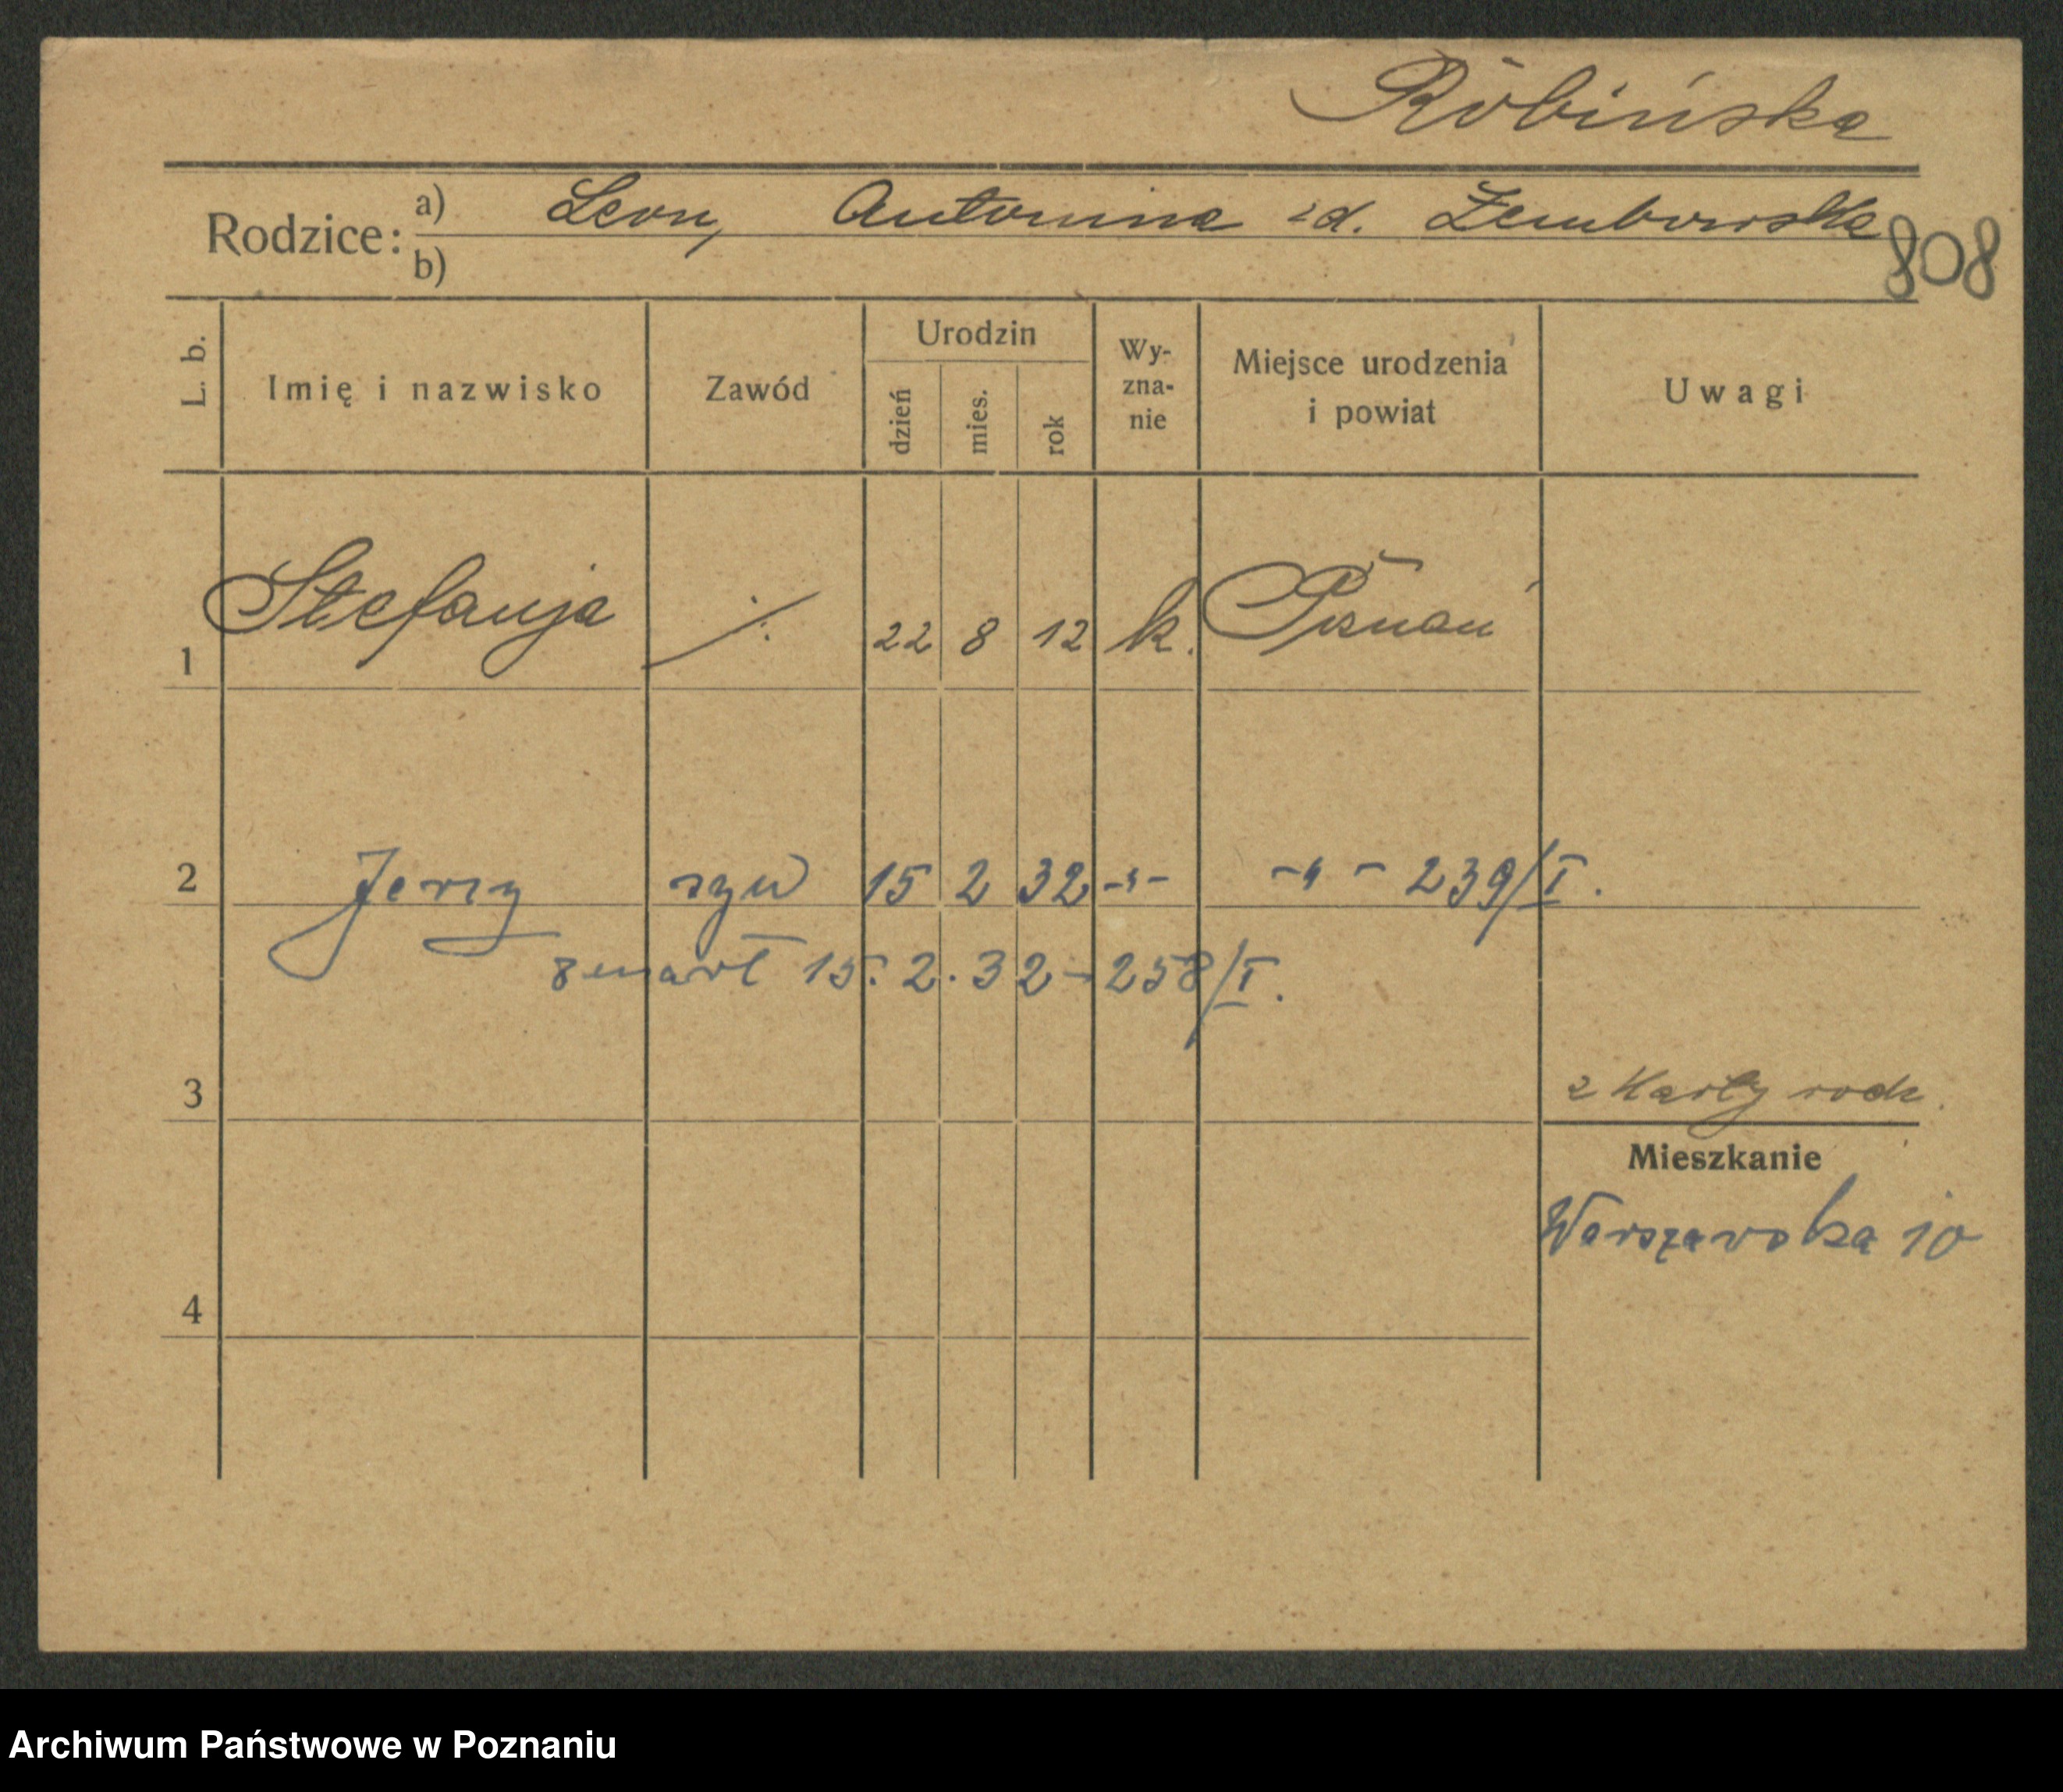 Róbińska
Rodzice: a) Leon, Antonina zd. Zembowska
b)
808
L. b. Imię i nazwisko Zawód Urodzin dzień mies. rok Wy-zna-nie Miejsce urodzenia i powiat Uwagi
1 Stefanja ./. 22 8 12 k. Poznań
2 Jerzy syn 15 2 32 -"- -"- 239/I.
zmarł 15.2.32 - 258/I.
3
z Karty rodz.
Mieszkanie
Warszawska 10
4
Archiwum Państwowe w Poznaniu